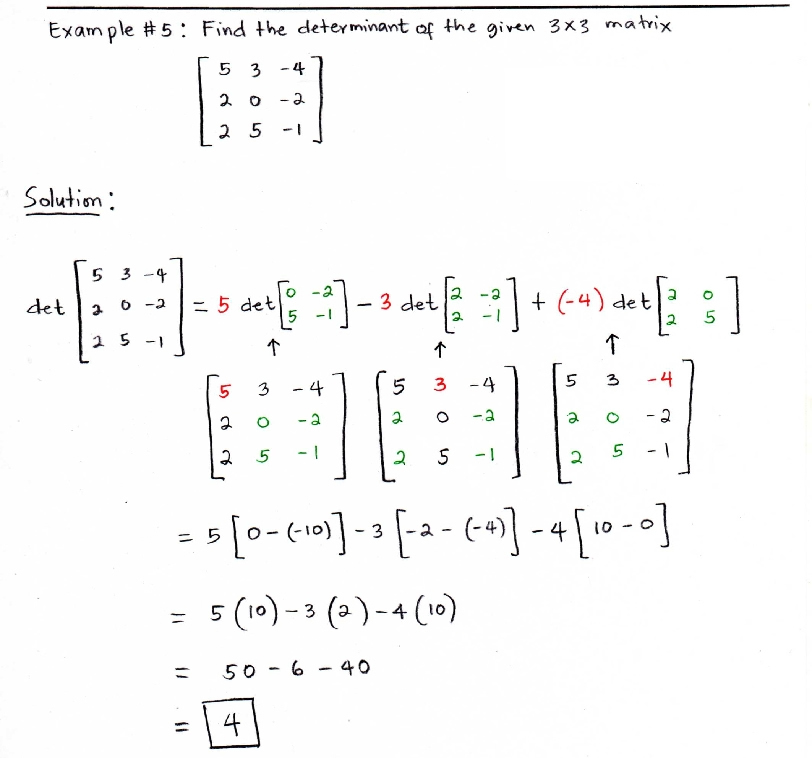 Example #5: Find the determinant of the given 3x3 matrix
[ 5 3 -4
2 0 -2
2 5 -1 ]
Solution:
det [ 5 3 -4
2 0 -2
2 5 -1 ] = 5 det [ 0 -2
5 -1 ] - 3 det [ 2 -2
2 -1 ] + (-4) det [ 2 0
2 5 ]
↑ ↑ ↑
[ 5 3 -4
2 0 -2
2 5 -1 ] [ 5 3 -4
2 0 -2
2 5 -1 ] [ 5 3 -4
2 0 -2
2 5 -1 ]
= 5 [0-(-10)] - 3 [-2-(-4)] - 4 [10-0]
= 5 (10) - 3 (2) - 4 (10)
= 50 - 6 - 40
= 4